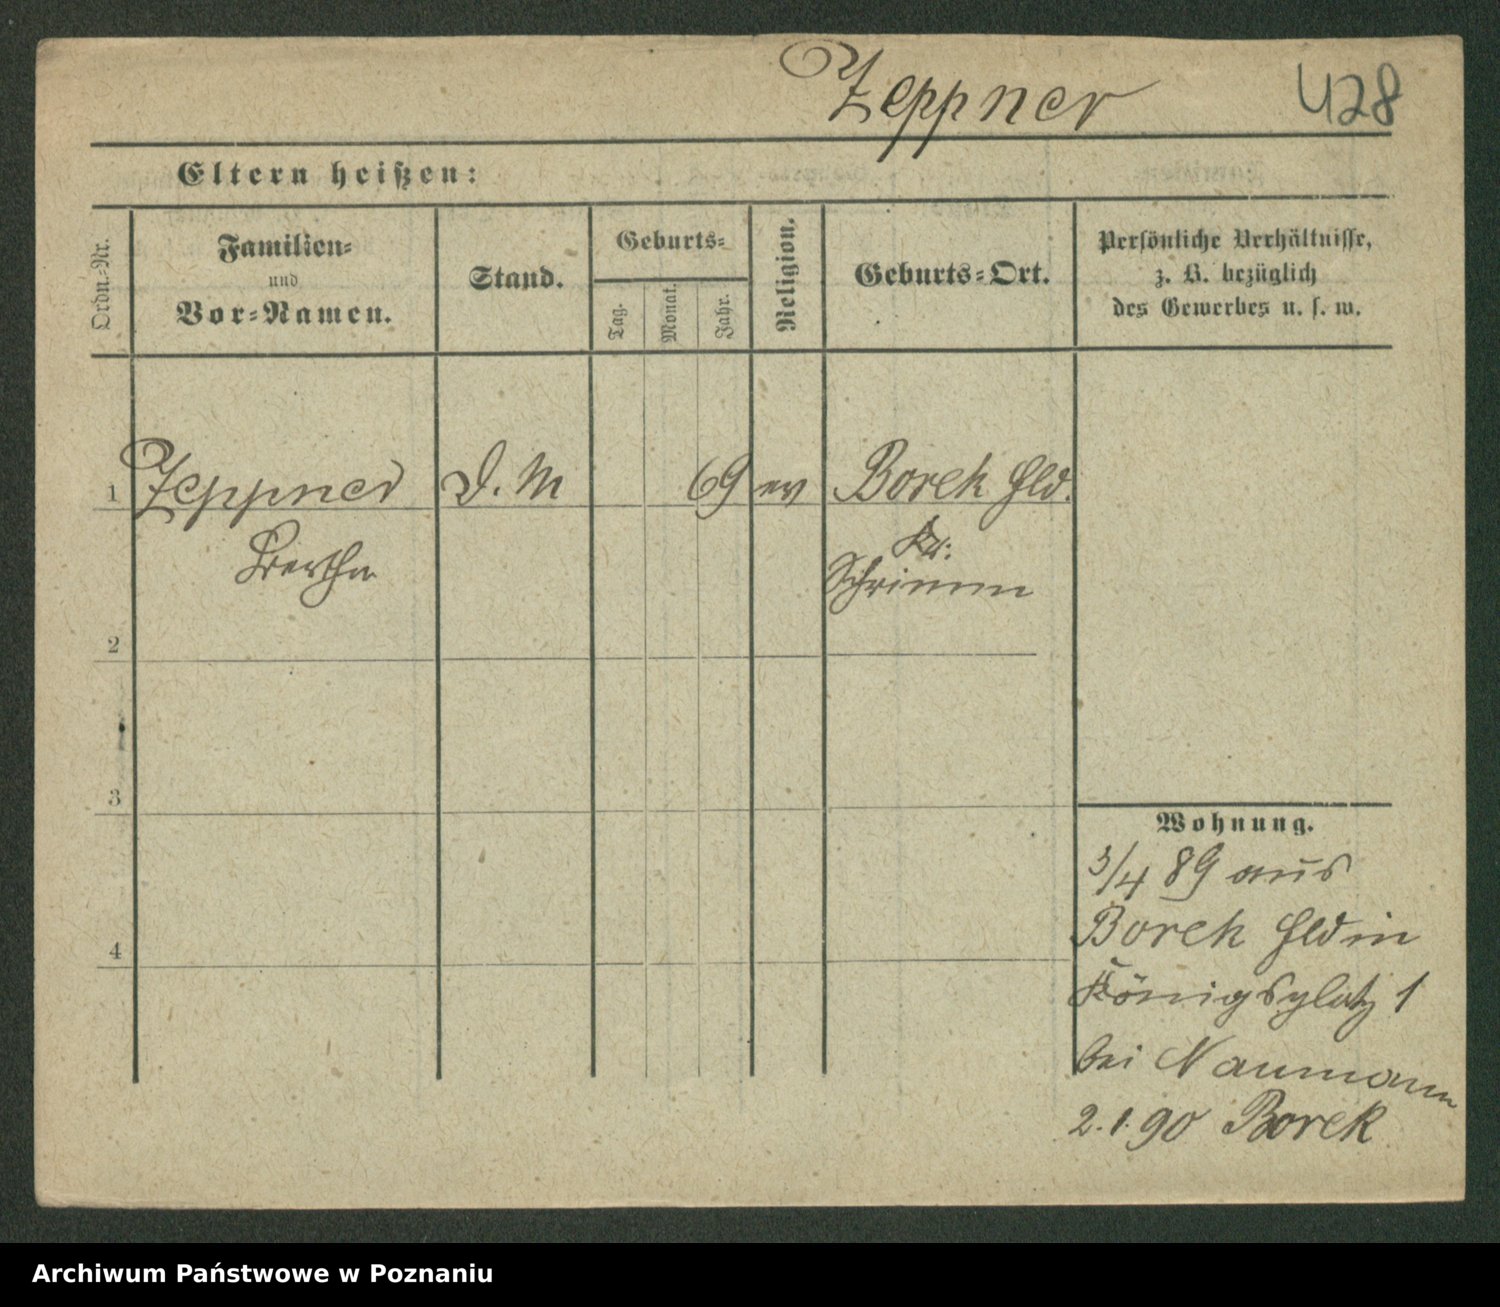 Zeppner 428
Eltern heißen:
Ordn.-Nr.
Familien-
und
Vor-Namen.
Stand.
Geburts-
Tag.
Monat.
Jahr.
Religion.
Geburts-Ort.
Persönliche Verhältnisse,
z. B. bezüglich
des Gewerbes u. s. w.
1 Zeppner D. M 69 ev Borek Hld.
Bertha Kr:
Schrimm
2
3
4
Wohnung.
3/4 89 aus
Borek Hld in
Königsplatz 1
bei Naumann
2.1.90 Borek
Archiwum Państwowe w Poznaniu